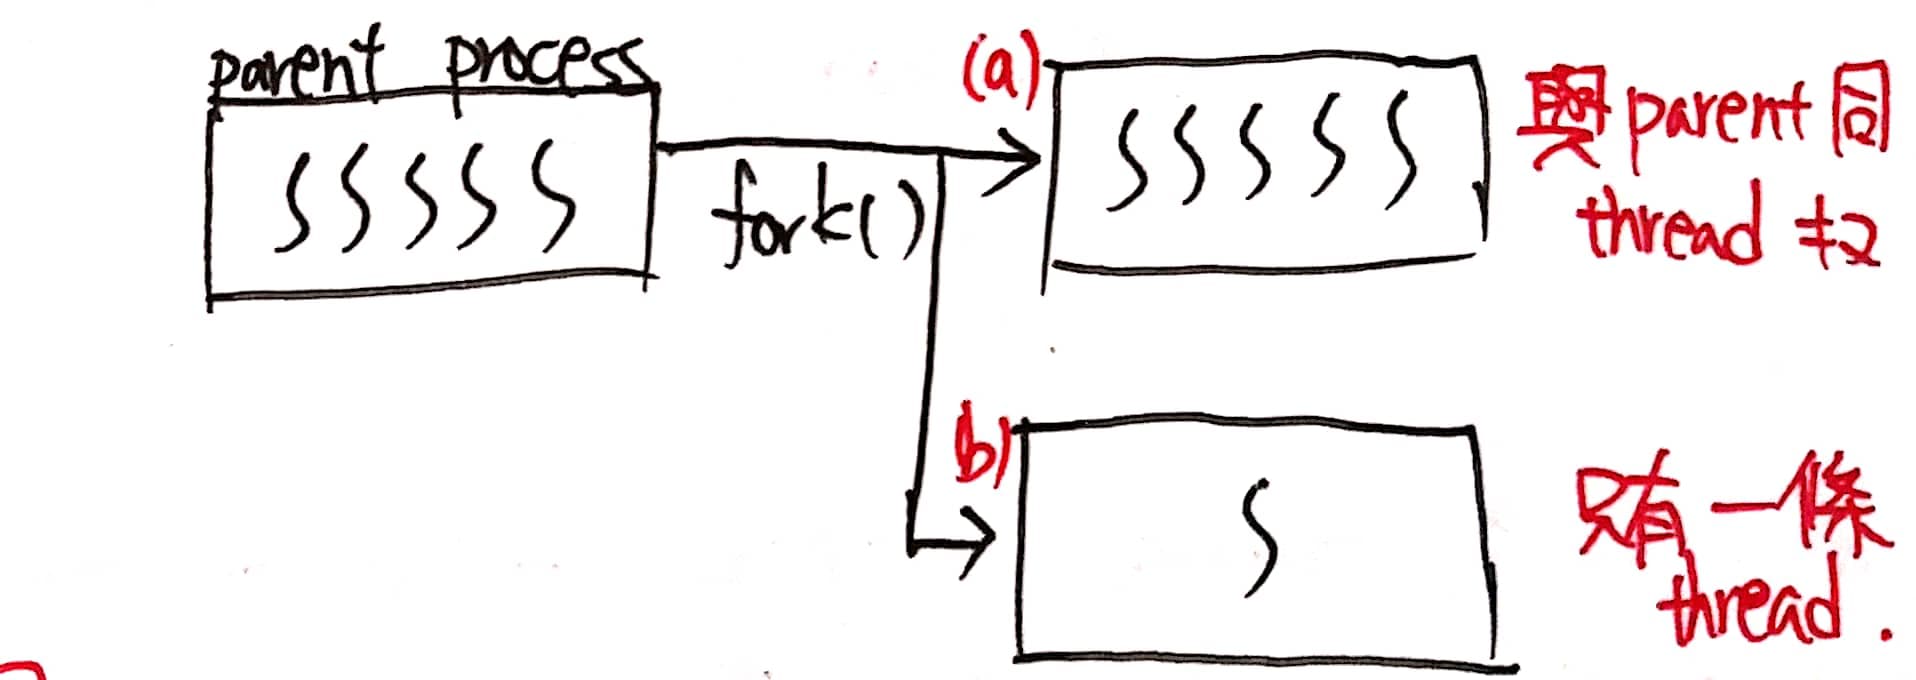 parent process
fork()
(a)
與 parent 同
thread 數
(b)
只有一條
thread.